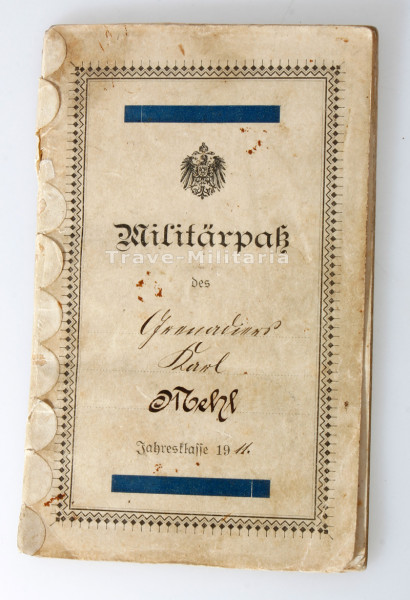 Militärpaß
Trave-Militaria
des
Grenadiers
Karl
Mehl
Jahresklasse 1911.